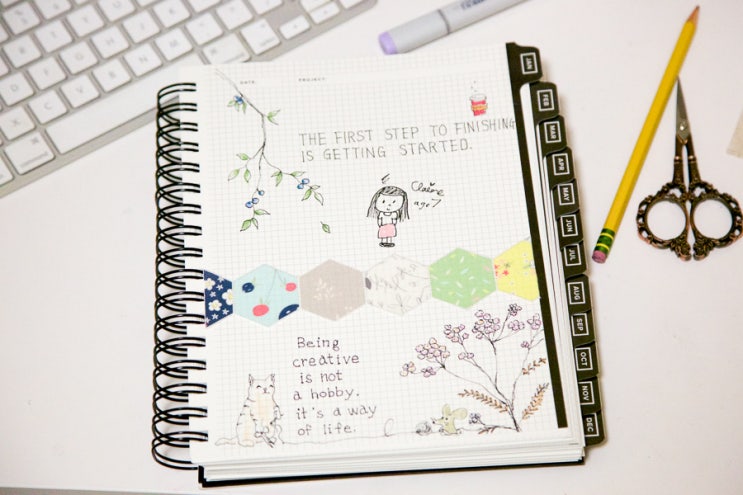 DATE PROJECT
THE FIRST STEP TO FINISHING
IS GETTING STARTED.
Claire
age 7
Being
creative
is not
a hobby.
it's a way
of life.
JAN
FEB
MAR
APR
MAY
JUN
JUL
AUG
SEP
OCT
NOV
DEC